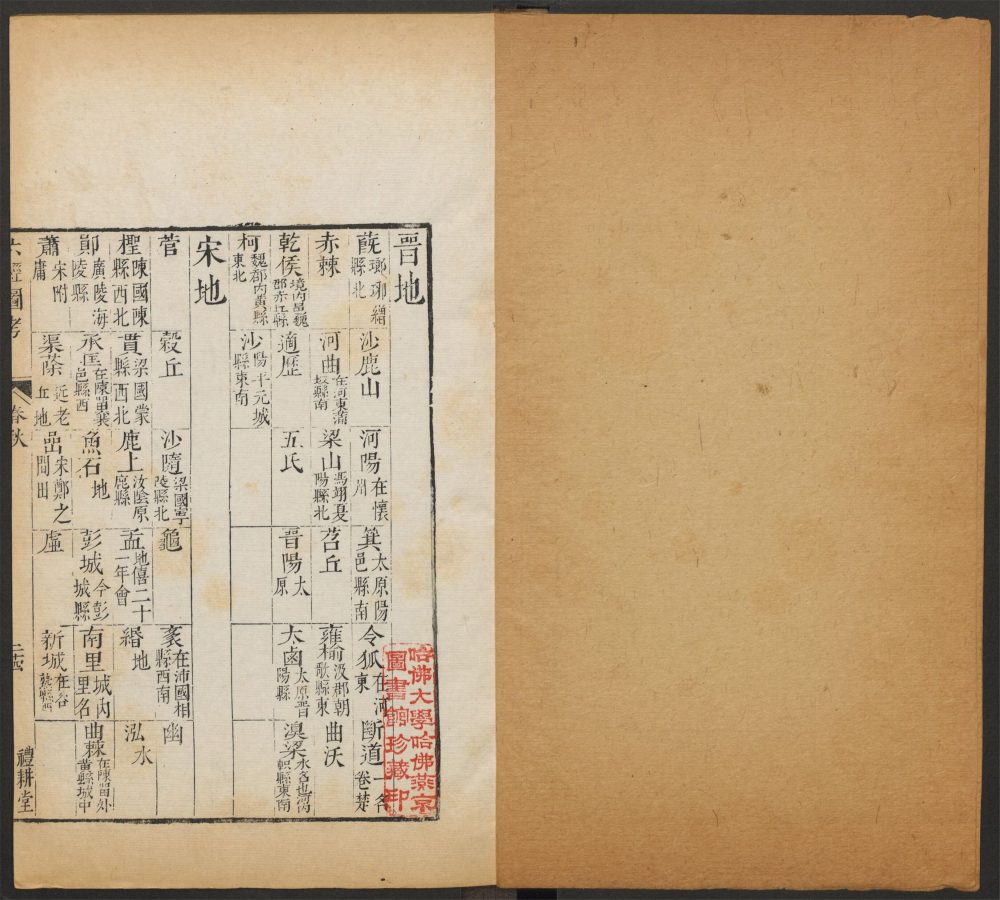 晉地
蔇瑯琊繒縣北 沙鹿山 河陽在懷州 箕太原陽邑縣南 令狐在河東 斷道一名卷楚
赤棘 河曲在河東蒲坂縣南 梁山馮翊夏陽縣北 苕丘 雍榆汲郡朝歌縣東 曲沃
乾侯境內 適歷 五氏 晉陽太原 大鹵太原晉陽縣 溴梁水名
柯魏郡內黃縣東北 沙陽平元城縣東南
宋地
菅 穀丘 沙隨梁國寧陵縣北 龜 袲在沛國相縣西南 幽
檉陳國陳縣西北 貫梁國蒙縣西北 鹿上汝陰原鹿縣 盂地僖二十一年會 緡地 泓水
鄖廣陵海陵縣 承匡在陳留襄邑縣西 魚石地 彭城今彭城縣 南里城內里名 曲棘在陳留外黃縣城中
蕭宋附庸 渠蒢近老丘地 嵒宋鄭之間田 虛 新城在谷熟縣西
六經圖考 春秋 禮耕堂
哈佛大學哈佛燕京
圖書館珍藏印